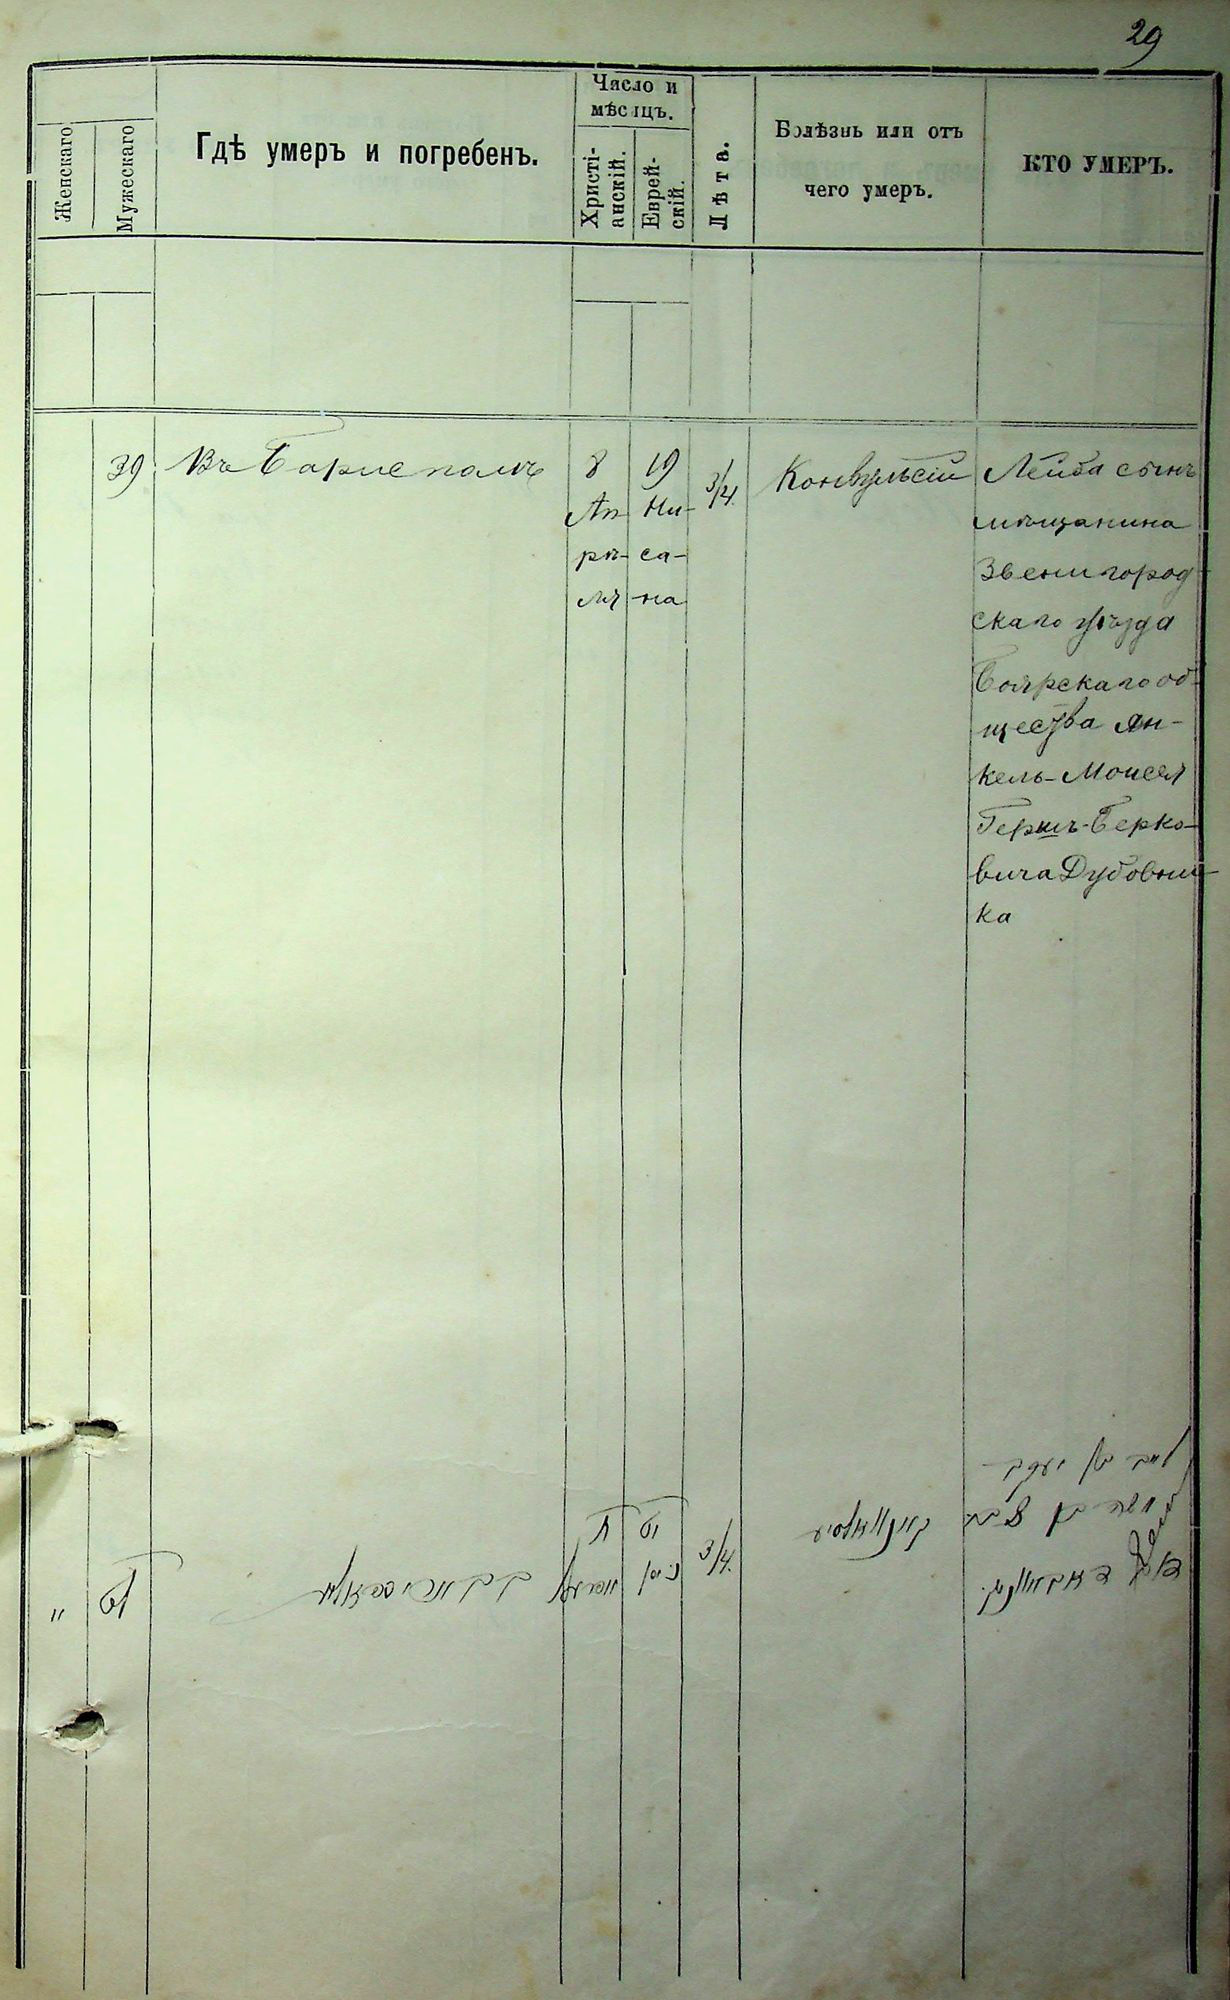 29
Женскаго
Мужескаго
Гдѣ умеръ и погребенъ.
Число и
мѣсяцъ.
Христі-
анскій.
Еврей-
скій.
Лѣта.
Болѣзнь или отъ
чего умеръ.
КТО УМЕРЪ.
39
Въ Бариспалѣ
8
Ап-
рѣ-
лѣ
19
Ни-
са-
на
3/4
Конвульсіи
Лейба сынъ
мѣщанина
Звенигород-
скаго уѣзда
Боярскаго об-
щества Ян-
кель-Мойсея
Гершъ-Берко-
вича Дубовни-
ка
לייב בן יעקב
משה בן צבי
ח
יט
ניסן
3/4
"
לט